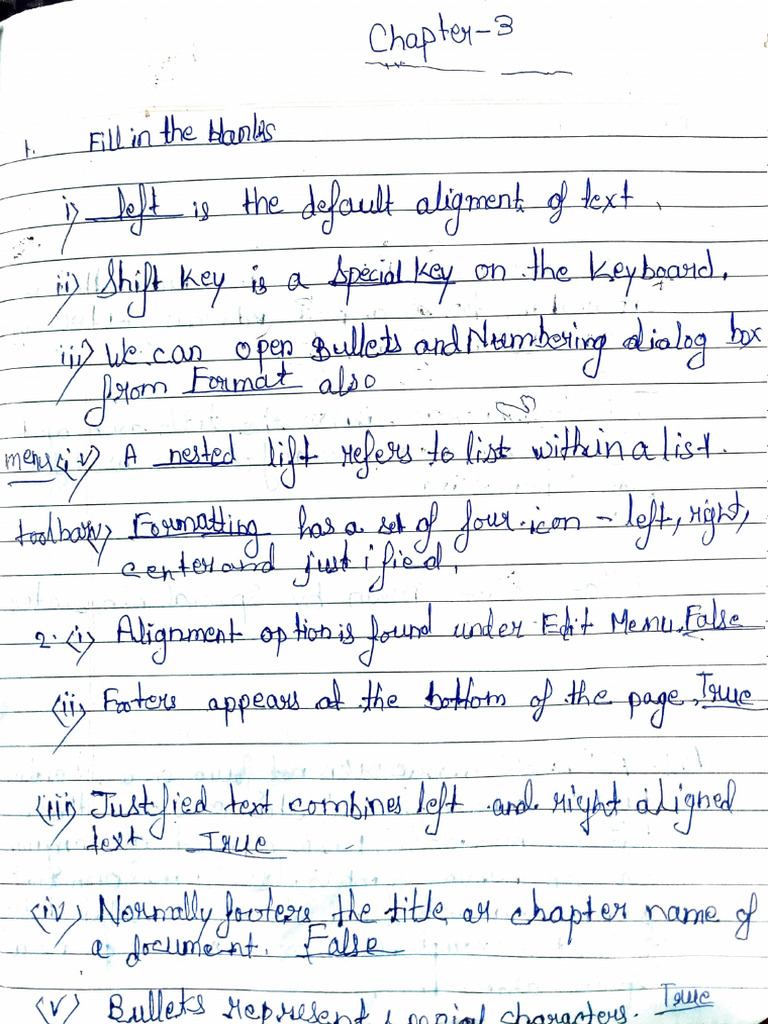 Chapter-3
1. Fill in the blanks
i) left is the default aligment of text.
ii) Shift Key is a Special Key on the Keyboard.
iii) We can open Bullets and Numbering dialog box
from Format also
menu iv) A nested lift refers to list within a list.
toolbar v) Formatting has a set of four icon - left, right,
center and justified.
2. (i) Alignment option is found under Edit Menu. False
(ii) Footers appears at the bottom of the page. True
(iii) Justfied text combines left and right aligned
text True
(iv) Normally footers the title or chapter name of
a document. False
(v) Bullets represent special characters. True